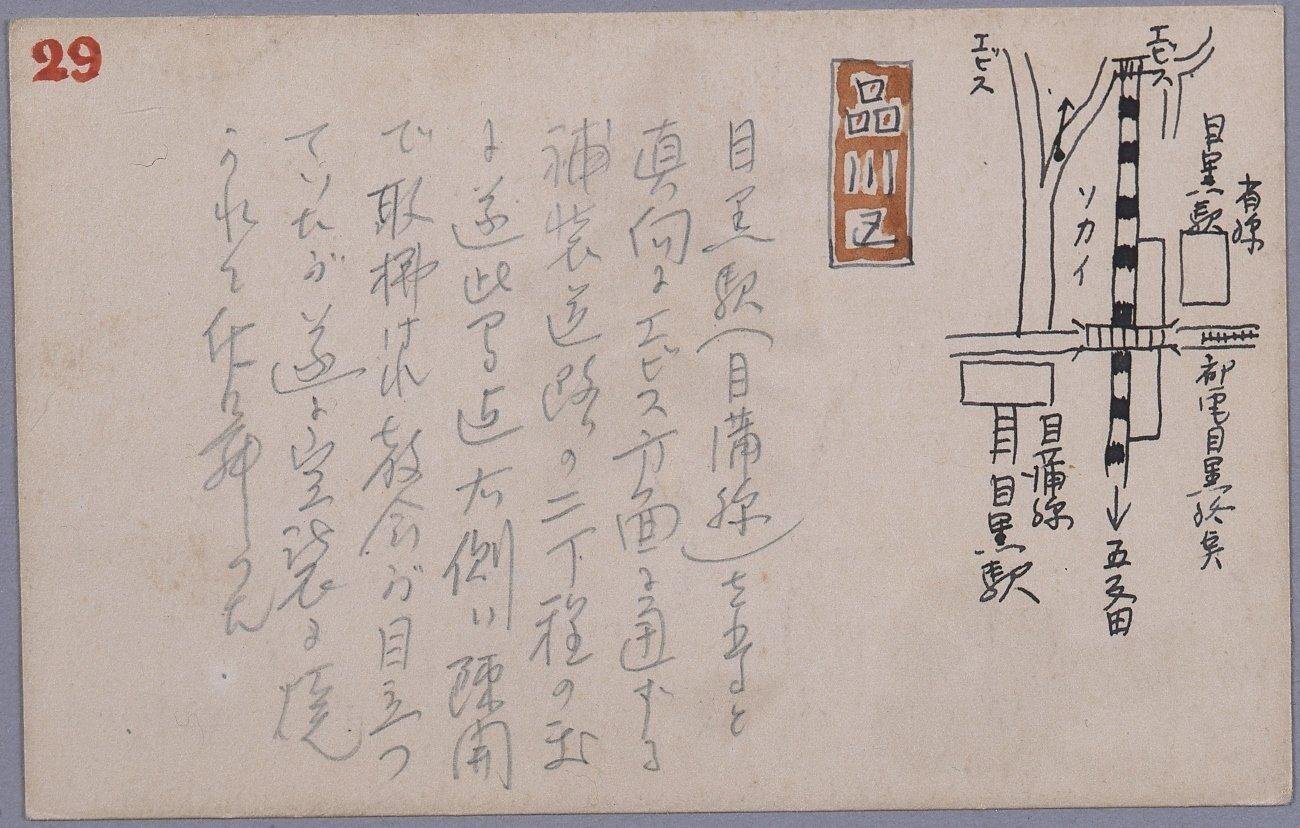 29
品川区
エビス
エビス
目黒駅
省線
ソカイ
都電目黒終点
目蒲線
目黒駅
五反田
目黒駅(目蒲線)を出ると
真向にエビス方面に通ずる
補装道路の二丁程の
に遂此間迄右側は疎開
で取梻はれ教会が目立つ
ていたが遂に空襲に焼
かれて仕舞つた